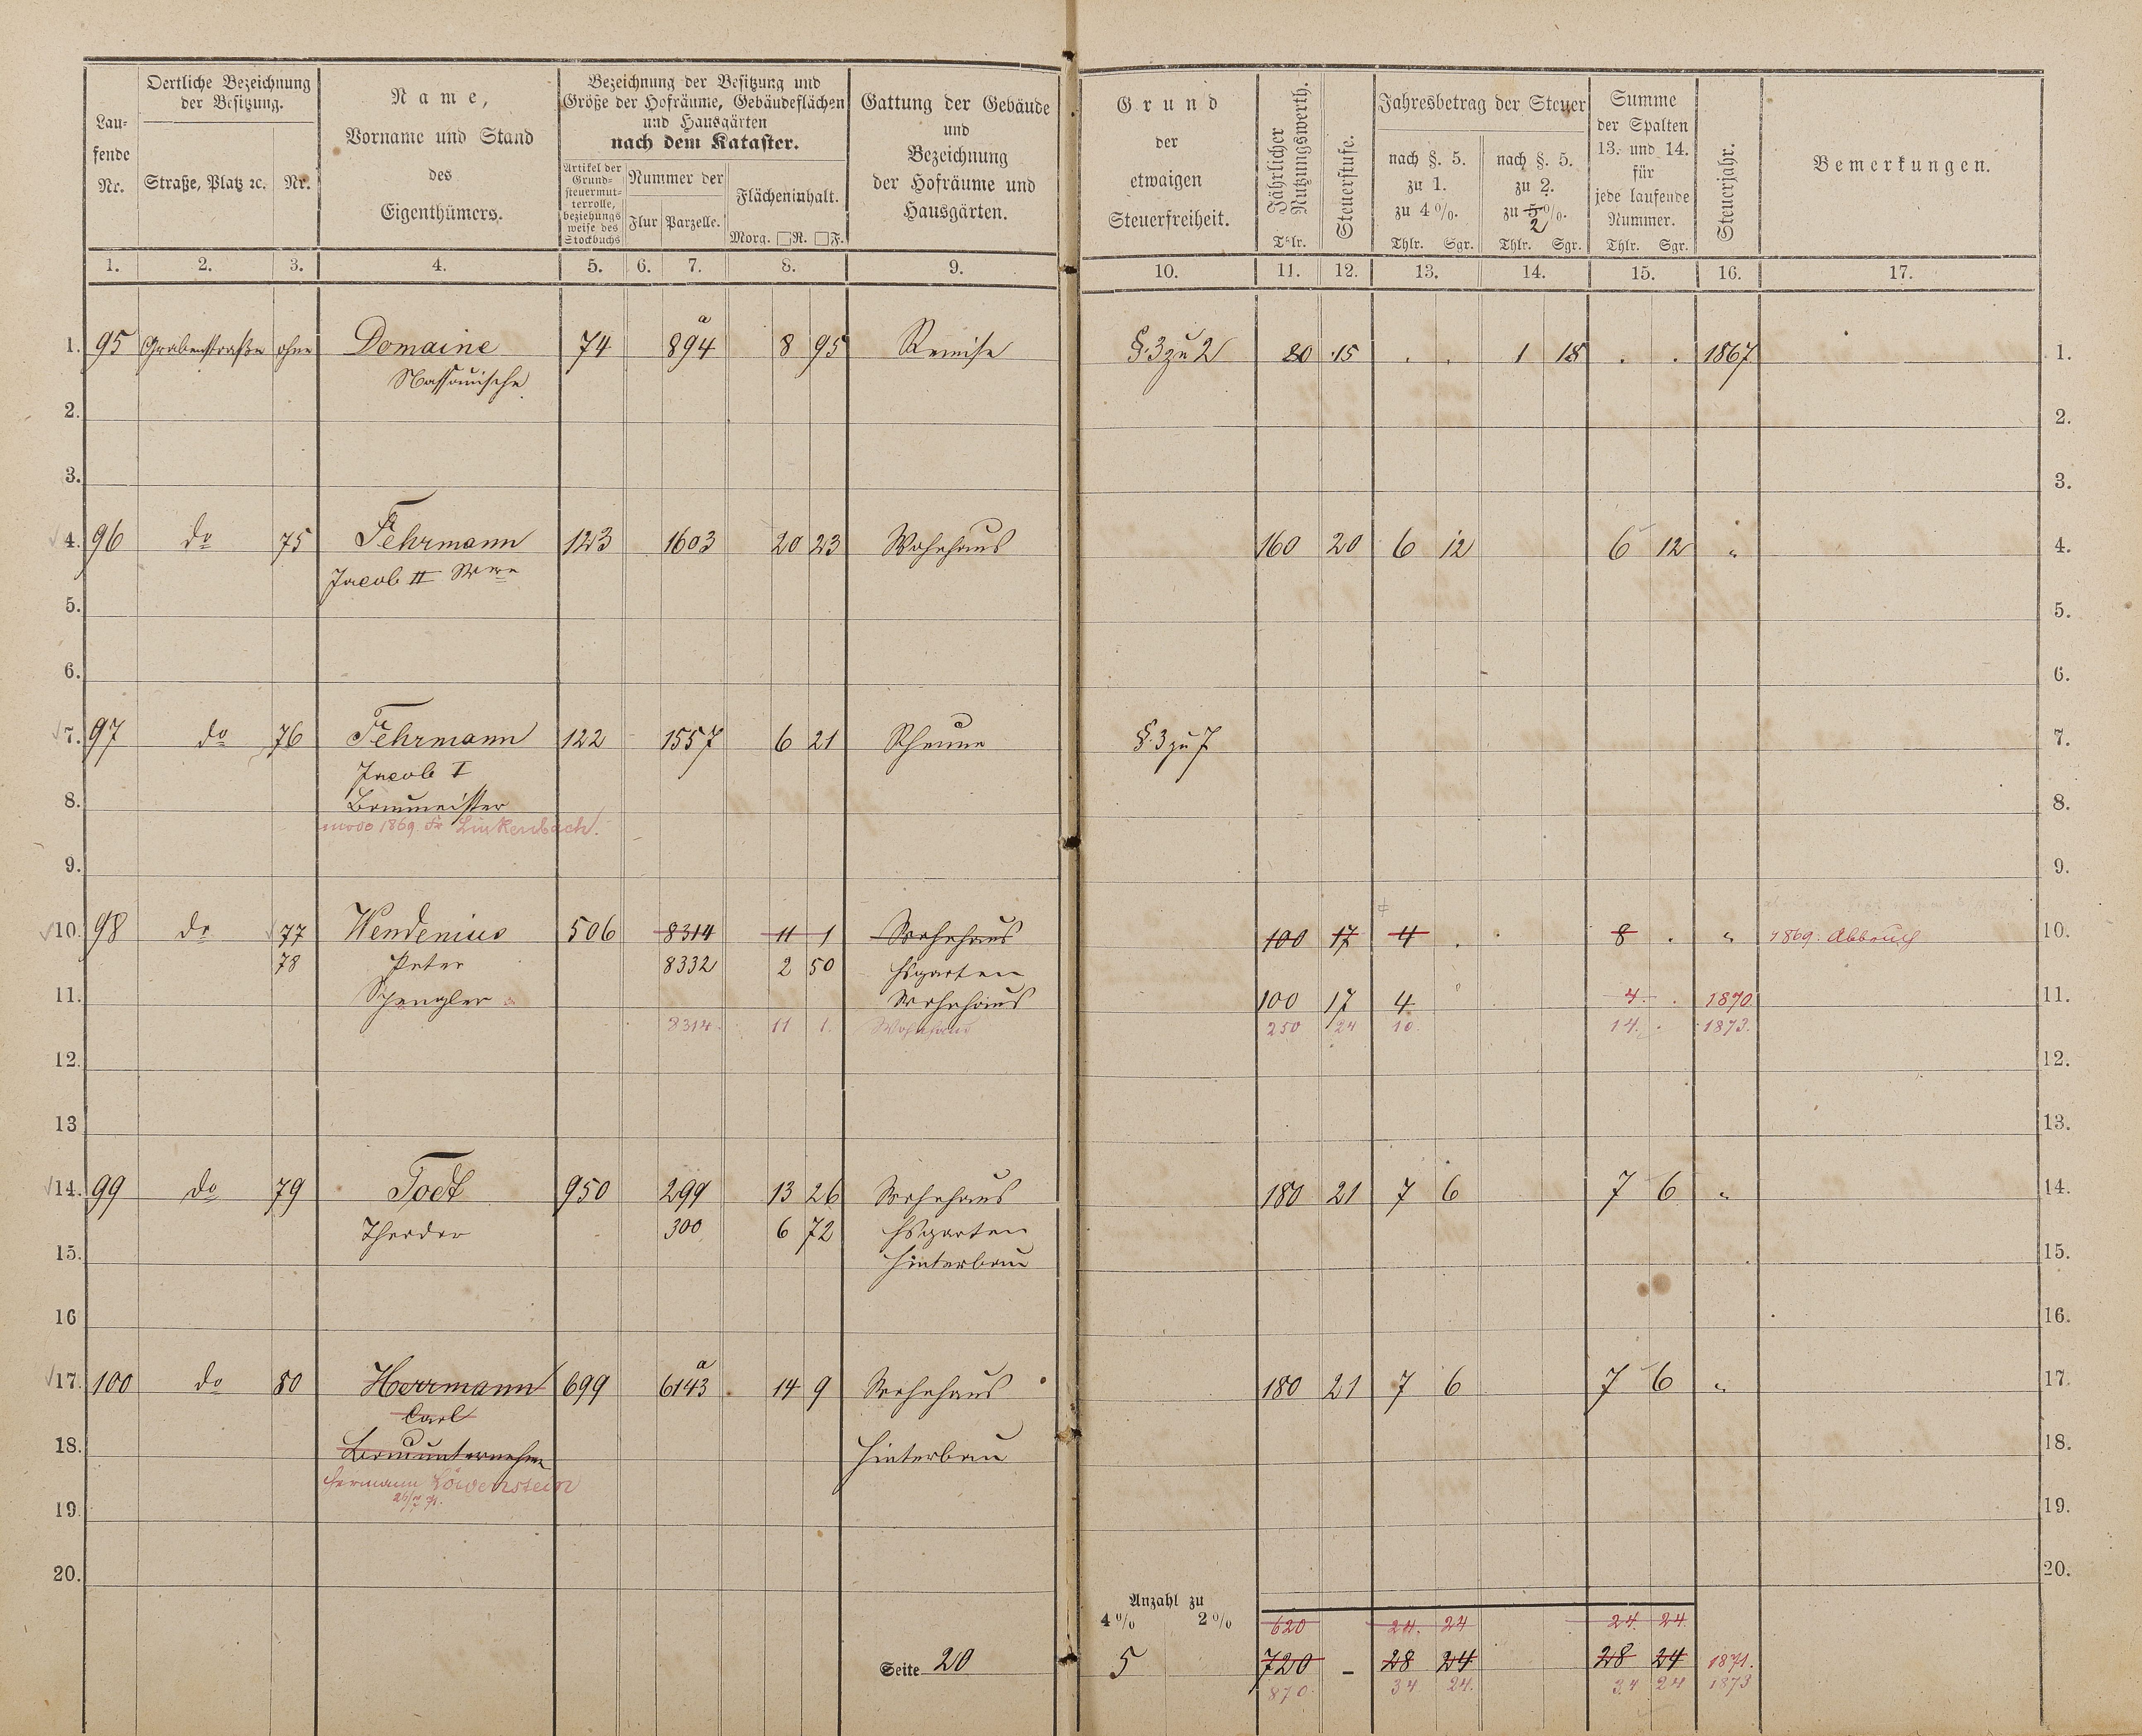 Lau-
fende
Nr.
Oertliche Bezeichnung
der Besitzung.
Straße, Platz ꝛc.
Nr.
Name,
Vorname und Stand
des
Eigenthümers.
Bezeichnung der Besitzung und
Größe der Hofräume, Gebäudeflächen
und Hausgärten
nach dem Kataster.
Artikel der
Grund-
steuermut-
terrolle,
beziehungs
weise des
Stockbuchs
Nummer der
Flur Parzelle.
Flächeninhalt.
Morg. □R. □F.
Gattung der Gebäude
und
Bezeichnung
der Hofräume und
Hausgärten.
Grund
der
etwaigen
Steuerfreiheit.
Jährlicher
Nutzungswerth.
Thlr.
Steuerstufe.
Jahresbetrag der Steuer
nach §. 5.
zu 1.
zu 4 %.
Thlr. Sgr.
nach §. 5.
zu 2.
zu 5 %.
2
Thlr. Sgr.
Summe
der Spalten
13. und 14.
für
jede laufende
Nummer.
Thlr. Sgr.
Steuerjahr.
Bemerkungen.
1. 2. 3. 4. 5. 6. 7. 8. 9. 10. 11. 12. 13. 14. 15. 16. 17.
a
1. 95 Grabenstraße ohne Domaine 74 894 8 95 Remise §. 3 zu 2 80 15 . . 1 18 . . 1867 1.
Nassauische
2. 2.
3. 3.
4. 96 do 75 Fehrmann 123 1603 20 23 Wohnhaus 160 20 6 12 6 12 " 4.
Jacob II Wwe
5. 5.
6. 6.
7. 97 do 76 Fehrmann 122 1557 6 21 Scheune §. 3 zu 7 7.
Jacob I
8. Baumeister 8.
modo 1869. Fr Linkenbach.
9. 9.
10. 98 do 77 Wendenius 506 8314 11 1 Wohnhaus 100 17 4 . 8 . " 1869. Abbruch 10.
78 Peter 8332 2 50 Hsgarten
11. Spengler Wohnhaus 100 17 4 4. . 1870 11.
8314. 11 1. Wohnhaus 250 24 10. 14. . 1873.
12. 12.
13 13.
14. 99 do 79 Todt 950 299 13 26 Wohnhaus 180 21 7 6 7 6 " 14.
Theodor 300 6 72 Hsgarten
15. Hinterbau 15.
16 16.
a
17. 100 do 80 Herrmann 699 6143 14 9 Wohnhaus 180 21 7 6 7 6 " 17.
Carl
18. Bauunternehmer Hinterbau 18.
Hermann Löwenstein
19. 19.
20. 20.
Anzahl zu
4 % 2 % 620 24. 24 24. 24
Seite 20 5 720 – 28 24 28 24 1871.
870. 34 24. 34 24 1873